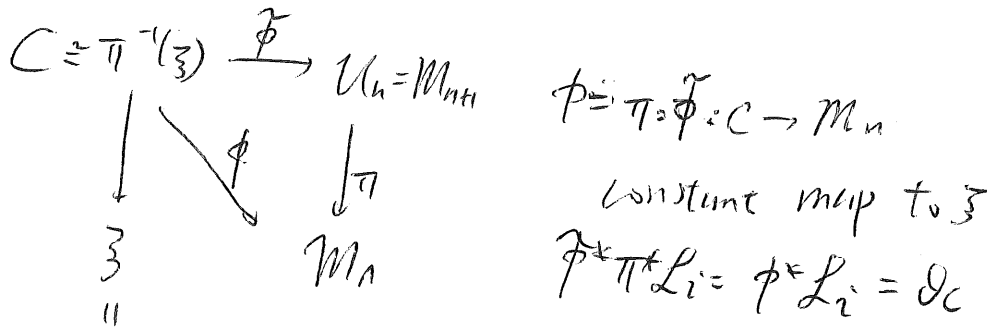 C ≅ π⁻¹(ξ) —φ̃→ U_n = M_{n+1}
φ ≅ π∘φ̃ : C → M_n
φ
π
constant map to ξ
ξ
M_n
φ̃*π*ℒ_i = φ*ℒ_i = 𝒪_C
||